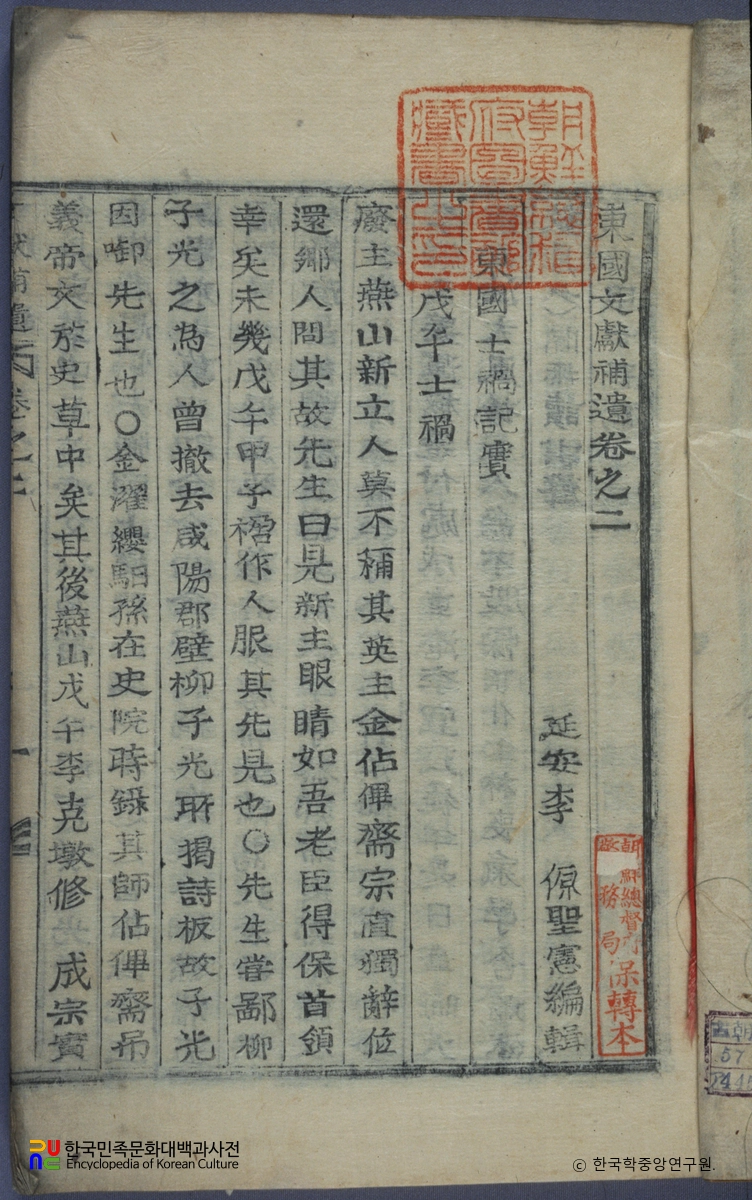 東國文獻補遺卷之二
延安李 源聖憲編輯
東國士禍記實
戊午士禍
廢主燕山新立人莫不稱其英主金佔侳齋宗直獨辭位
還鄕人問其故先生曰見新主眼睛如吾老臣得保首領
幸矣未幾戊午甲子禍作人服其先見也○先生嘗鄙柳
子光之為人曾撤去咸陽郡壁柳子光所揭詩板故子光
因啣先生也○金濯纓馹孫在史院時錄其師佔侳齋吊
義帝文於史草中矣其後燕山戊午李克墩修 成宗實
獻補遺 卷之二
朝鮮總督府圖書之印
朝鮮總督府
務局保轉本
朝
57
한국민족문화대백과사전
Encyclopedia of Korean Culture
© 한국학중앙연구원.